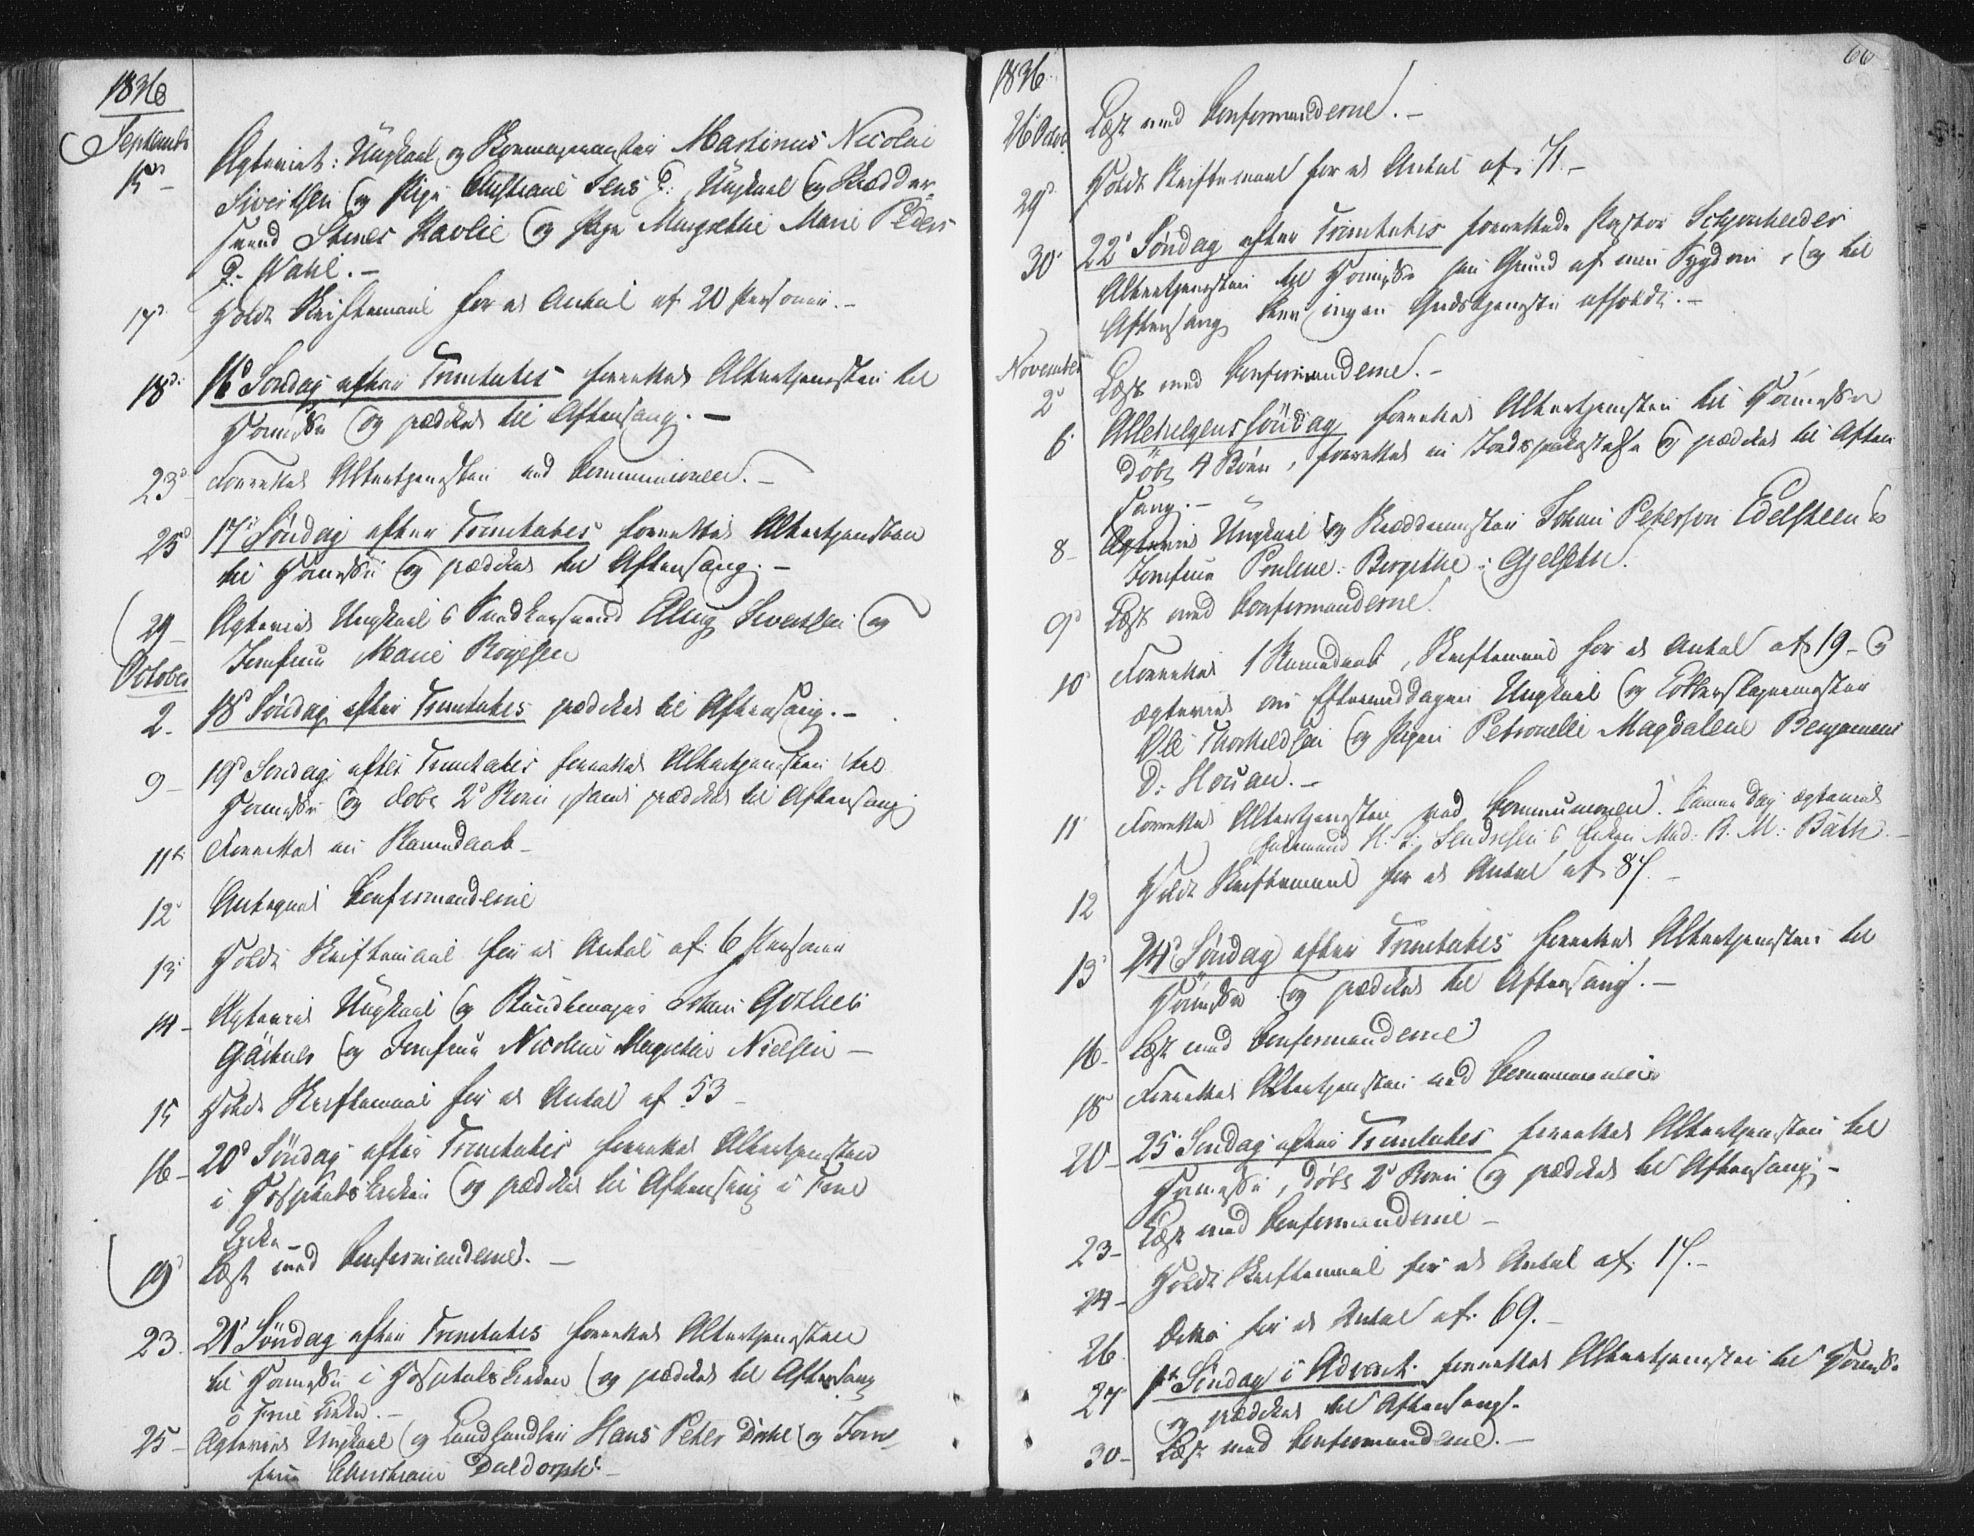 1836
Septembr
15d Ægteviet: Ungkarl og Skomagermester Martinus Nicolai
Sivertsen og Pige Christiane Jens D:, Ungkarl og Skrædder
svend Stener Havlie og Pige Margrethe Marie Peders
D: Wahl. –
17d Holdt Skriftemaal for et Antal af 20 Personer. –
18d. 16d Søndag efter Trinitatis forrettet Altertjenesten til
Høimesse og prædiket til Aftensang. –
23d Forrettet Altertjenesten ved Communionen. –
25d 17d Søndag efter Trinitatis forrettet Altertjenesten
til Høimesse og prædiket til Aftensang. –
29 – Ægteviet Ungkarl & Elling Sivertsen og
Jomfrue Marie Børgesen
October
2. 18d Søndag efter Trinitatis prædiket til Aftensang. –
9 – 19d Søndag efter Trinitatis forrettet Altertjenesten til
Høimesse og døbt 2 Børn, samt prædiket til Aftensang
11te Forrettet en Barnedaab –
12 Antegnet Confirmanderne
13 Holdt Skriftemaal for et Antal af 6 Personer
14 – Ægteviet Ungkarl og Bundtmager Johan Gotlieb
og Jomfrue Nicoline Magrethe Nielsen –
15 Holdt Skriftemaal for et Antal af 53 –
16 – 20d Søndag efter Trinitatis forrettet Altertjenesten
i Hospitalskirken og prædiket til Aftensang i Frue
Kirke –
19d Læst med Confirmanderne. –
23. 21d Søndag efter Trinitatis forrettet Altertjenesten
til Høimesse i Hospitalskirken og prædiket til Aftensang
i Frue Kirke. –
25 – Ægteviet Ungkarl og Landhandler Hans Peter Dahl og Jom-
frue Christiane Daldorph. –
66
1836.
26 Octob. Læst med Confirmanderne. –
29d. Holdt Skriftemaal for et Antal af 71. –
30. 22d Søndag efter Trinitatis forrettede Pastor Schjønheider
Altertjenesten til Høimesse paa Grund af min Sygdom, og til
Aftensang blev ingen Gudstjeneste afholdt. –
November
2d Læst med Confirmanderne. –
6. Allehelgens søndag forrettet Altertjenesten til Høimesse
døbt 4 Børn, forrettet en Jordspaakastelse og prædiket til Aften
sang. –
8 – Ægteviet Ungkarl og Skræddermester Johan Peterson Edelsteen &
Jomfrue Pouline Birgitte Gjelseth.
9d Læst med Confirmanderne.
10 Forrettet 1 Barnedaab, Skriftemaal for et Antal af 19 – &
ægteviet om Eftermiddagen Ungkarl og
Ole Thorkildsen og Pigen Petronelle Magdalene Benjamens
D: Houan. –
11 Forrettet Altertjenesten ved Communionen. Samme Dag ægteviet
Enkemand H. J. & Enken Mad: B. M: Bath. –
12 Holdt Skriftemaal for et Antal af 87. –
13 24d Søndag efter Trinitatis forrettet Altertjenesten til
Høimesse og prædiket til Aftensang. –
16 – Læst med Confirmanderne
18 Forrettet Altertjenesten ved Communionen
20 – 25 Søndag efter Trinitatis forrettet Altertjenesten til
Høimesse, døbt 2 Børn og prædiket til Aftensang. –
23 – Læst med Confirmanderne –
24 – Holdt Skriftemaal for et Antal af 17. –
26 Ditto for et Antal af 69. –
27 1ste Søndag i Advent forrettet Altertjenesten til Høimesse
og prædiket til Aftensang. –
30 – Læst med Confirmanderne. –